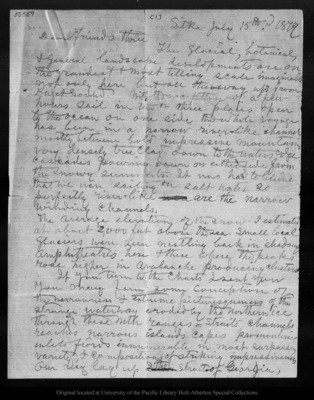 Sitka July 15th, 1879
Dear Friends three
The Glacial, botanical,
& general landscape developments are on
the grandest & most telling scale imaginable
not only here but all the way up from
Puget Sound. With exception of a few
hours sail in two or three places open
to the ocean on one side the whole voyage
has been in a narrow river-like channel
mostly between bold impressive mountains
very densely tree clad down to the waters edge
cascades pouring down on either side from
the snowy summits. It was hard to think
that we were sailing on salt water so
perfectly riverlike are the narrow
winding channels.
The average elevation of the snow I estimated
at about 2000 feet above the sea. Small local
glaciers were seen nestling back in shadowy
amphitheatres here & there where the peaks
rose higher in avalanche producing clusters
If you turn to the Chart I sent you
you may form some conceptions of
the narrowness & extreme picturesqueness of the
strange waterway eroded by the northern ice
through that with ranges straits channels
reaches narrows islands capes promontories
inlets fiords innumerable in most surpassing
variety & composition of striking impressiveness
Our way lay up the strait of Georgia,
Original located at University of the Pacific Library Holt-Atherton Special Collections